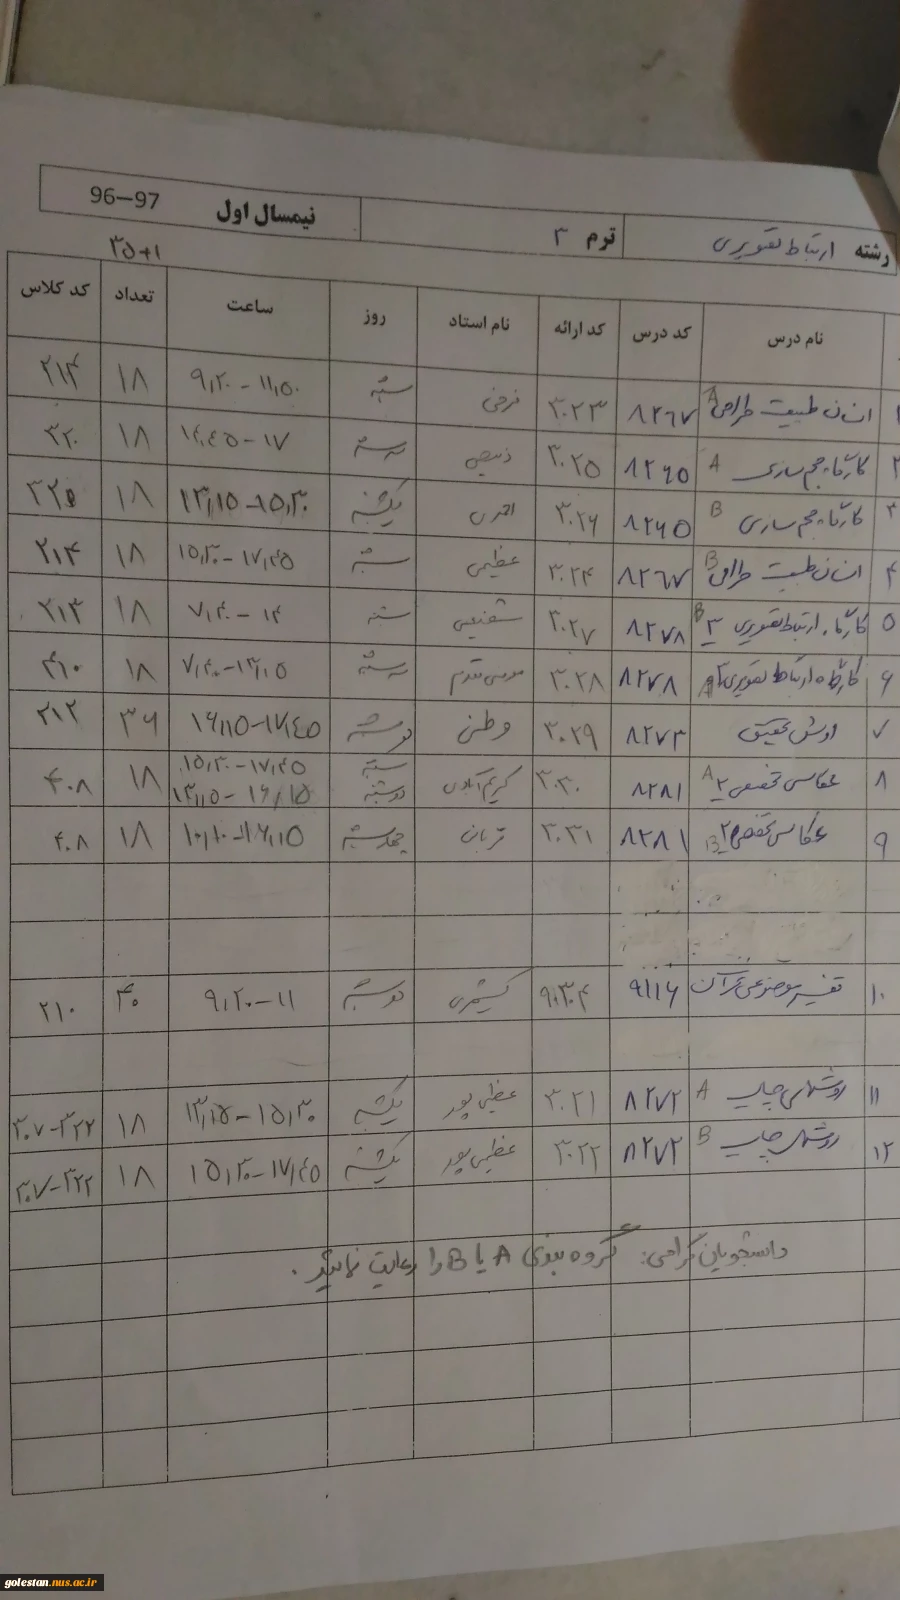 رشته ارتباط تصویری ترم ۳ نیمسال اول 96–97
۳۵+۱
نام درس کد درس کد ارائه نام استاد روز ساعت تعداد کد کلاس
انسان طبیعت طراحی A ۸۲۶۷ ۳۰۲۳ فرخی شنبه ۹,۲۰ - ۱۱,۵۰ ۱۸ ۲۱۴
۲ کارگاه حجم سازی A ۸۲۶۵ ۳۰۲۵ سه شنبه ۱۴,۴۵ - ۱۷ ۱۸ ۳۲۰
۳ کارگاه حجم سازی B ۸۲۶۵ ۳۰۲۶ یکشنبه ۱۳,۱۵ - ۱۵,۳۰ ۱۸
۴ انسان طبیعت طراحی B ۸۲۶۷ ۳۰۲۴ عظیمی شنبه ۱۵,۳۰ - ۱۷,۴۵ ۱۸ ۲۱۴
۵ کارگاه ارتباط تصویری ۳ B ۸۲۷۸ ۳۰۲۷ شفیعی شنبه ۷,۴۰ - ۱۴ ۱۸ ۲۱۳
۶ کارگاه ارتباط تصویری ۳ A ۸۲۷۸ ۳۰۲۸ موسی مقدم سه شنبه ۷,۴۰ - ۱۳,۰۵ ۱۸ ۴۱۰
۷ روش تحقیق ۸۲۷۳ ۳۰۲۹ وطنی دوشنبه ۱۶,۱۵ - ۱۷,۴۵ ۳۶ ۲۱۲
۸ عکاسی تخصصی ۲ A ۸۲۸۱ ۳۰۳۰ کریم آبادی شنبه ۱۵,۳۰ - ۱۷,۴۵ ۱۸ ۴۰۸
دوشنبه ۱۳,۱۵ - ۱۶,۱۵
۹ عکاسی تخصصی ۲ B ۸۲۸۱ ۳۰۳۱ قربان چهارشنبه ۱۰,۱۰ - ۱۶,۱۵ ۱۸ ۴۰۸
۱۰ تفسیر موضوعی قرآن ۹۱۱۶ ۹۰۳۰۴ کشمیری دوشنبه ۹,۲۰ - ۱۱ ۴۰ ۲۱۰
۱۱ روشهای چاپ A ۸۲۷۲ ۳۰۲۱ عظیم پور یکشنبه ۱۳,۱۵ - ۱۵,۳۰ ۱۸ ۳۰۷-۳۲۲
۱۲ روشهای چاپ B ۸۲۷۲ ۳۰۲۲ عظیم پور یکشنبه ۱۵,۳۰ - ۱۷,۴۵ ۱۸ ۳۰۷-۳۲۲
دانشجویان گرامی: گروه بندی A یا B را رعایت نمائید.
golestan.nus.ac.ir